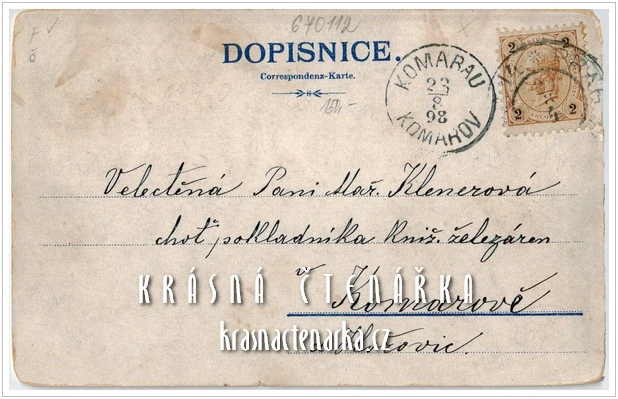 670112
DOPISNICE.
Correspondenz-Karte.
150,-
KOMARAU
23
8
98
KOMAROV
2 2
2 2
Velectěná Paní Mař. Klenerová
choť pokladníka kníž. železáren
v Komarově
KRÁSNÁ ČTENÁŘKA
krasnactenarka.cz